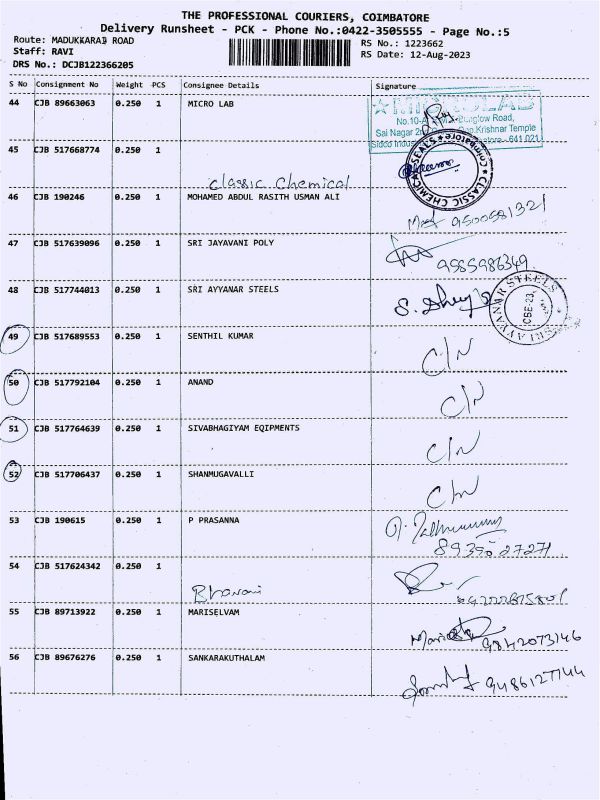 THE PROFESSIONAL COURIERS, COIMBATORE
Delivery Runsheet - PCK - Phone No.:0422-3505555 - Page No.:5
Route: MADUKKARAI ROAD
Staff: RAVI
DRS No.: DCJB122366205
RS No.: 1223662
RS Date: 12-Aug-2023
S No Consignment No Weight PCS Consignee Details Signature
44 CJB 89663063 0.250 1 MICRO LAB
No.10-A Bunglow Road,
Sai Nagar Opp.Krishnar Temple
Sidco Coimbatore - 641 021
45 CJB 517668774 0.250 1
Classic Chemical
CLASSIC CHEMICAL SEALS Coimbatore
46 CJB 190246 0.250 1 MOHAMED ABDUL RASITH USMAN ALI
9500581321
47 CJB 517639096 0.250 1 SRI JAYAVANI POLY
9585986349
48 CJB 517744013 0.250 1 SRI AYYANAR STEELS
SRI AYYANAR STEELS CBE-23
49 CJB 517689553 0.250 1 SENTHIL KUMAR C/N
50 CJB 517792104 0.250 1 ANAND C/N
51 CJB 517764639 0.250 1 SIVABHAGIYAM EQIPMENTS C/N
52 CJB 517706437 0.250 1 SHANMUGAVALLI C/N
53 CJB 190615 0.250 1 P PRASANNA
89396 27271
54 CJB 517624342 0.250 1
Bhavani
55 CJB 89713922 0.250 1 MARISELVAM
9842073146
56 CJB 89676276 0.250 1 SANKARAKUTHALAM
9486127144